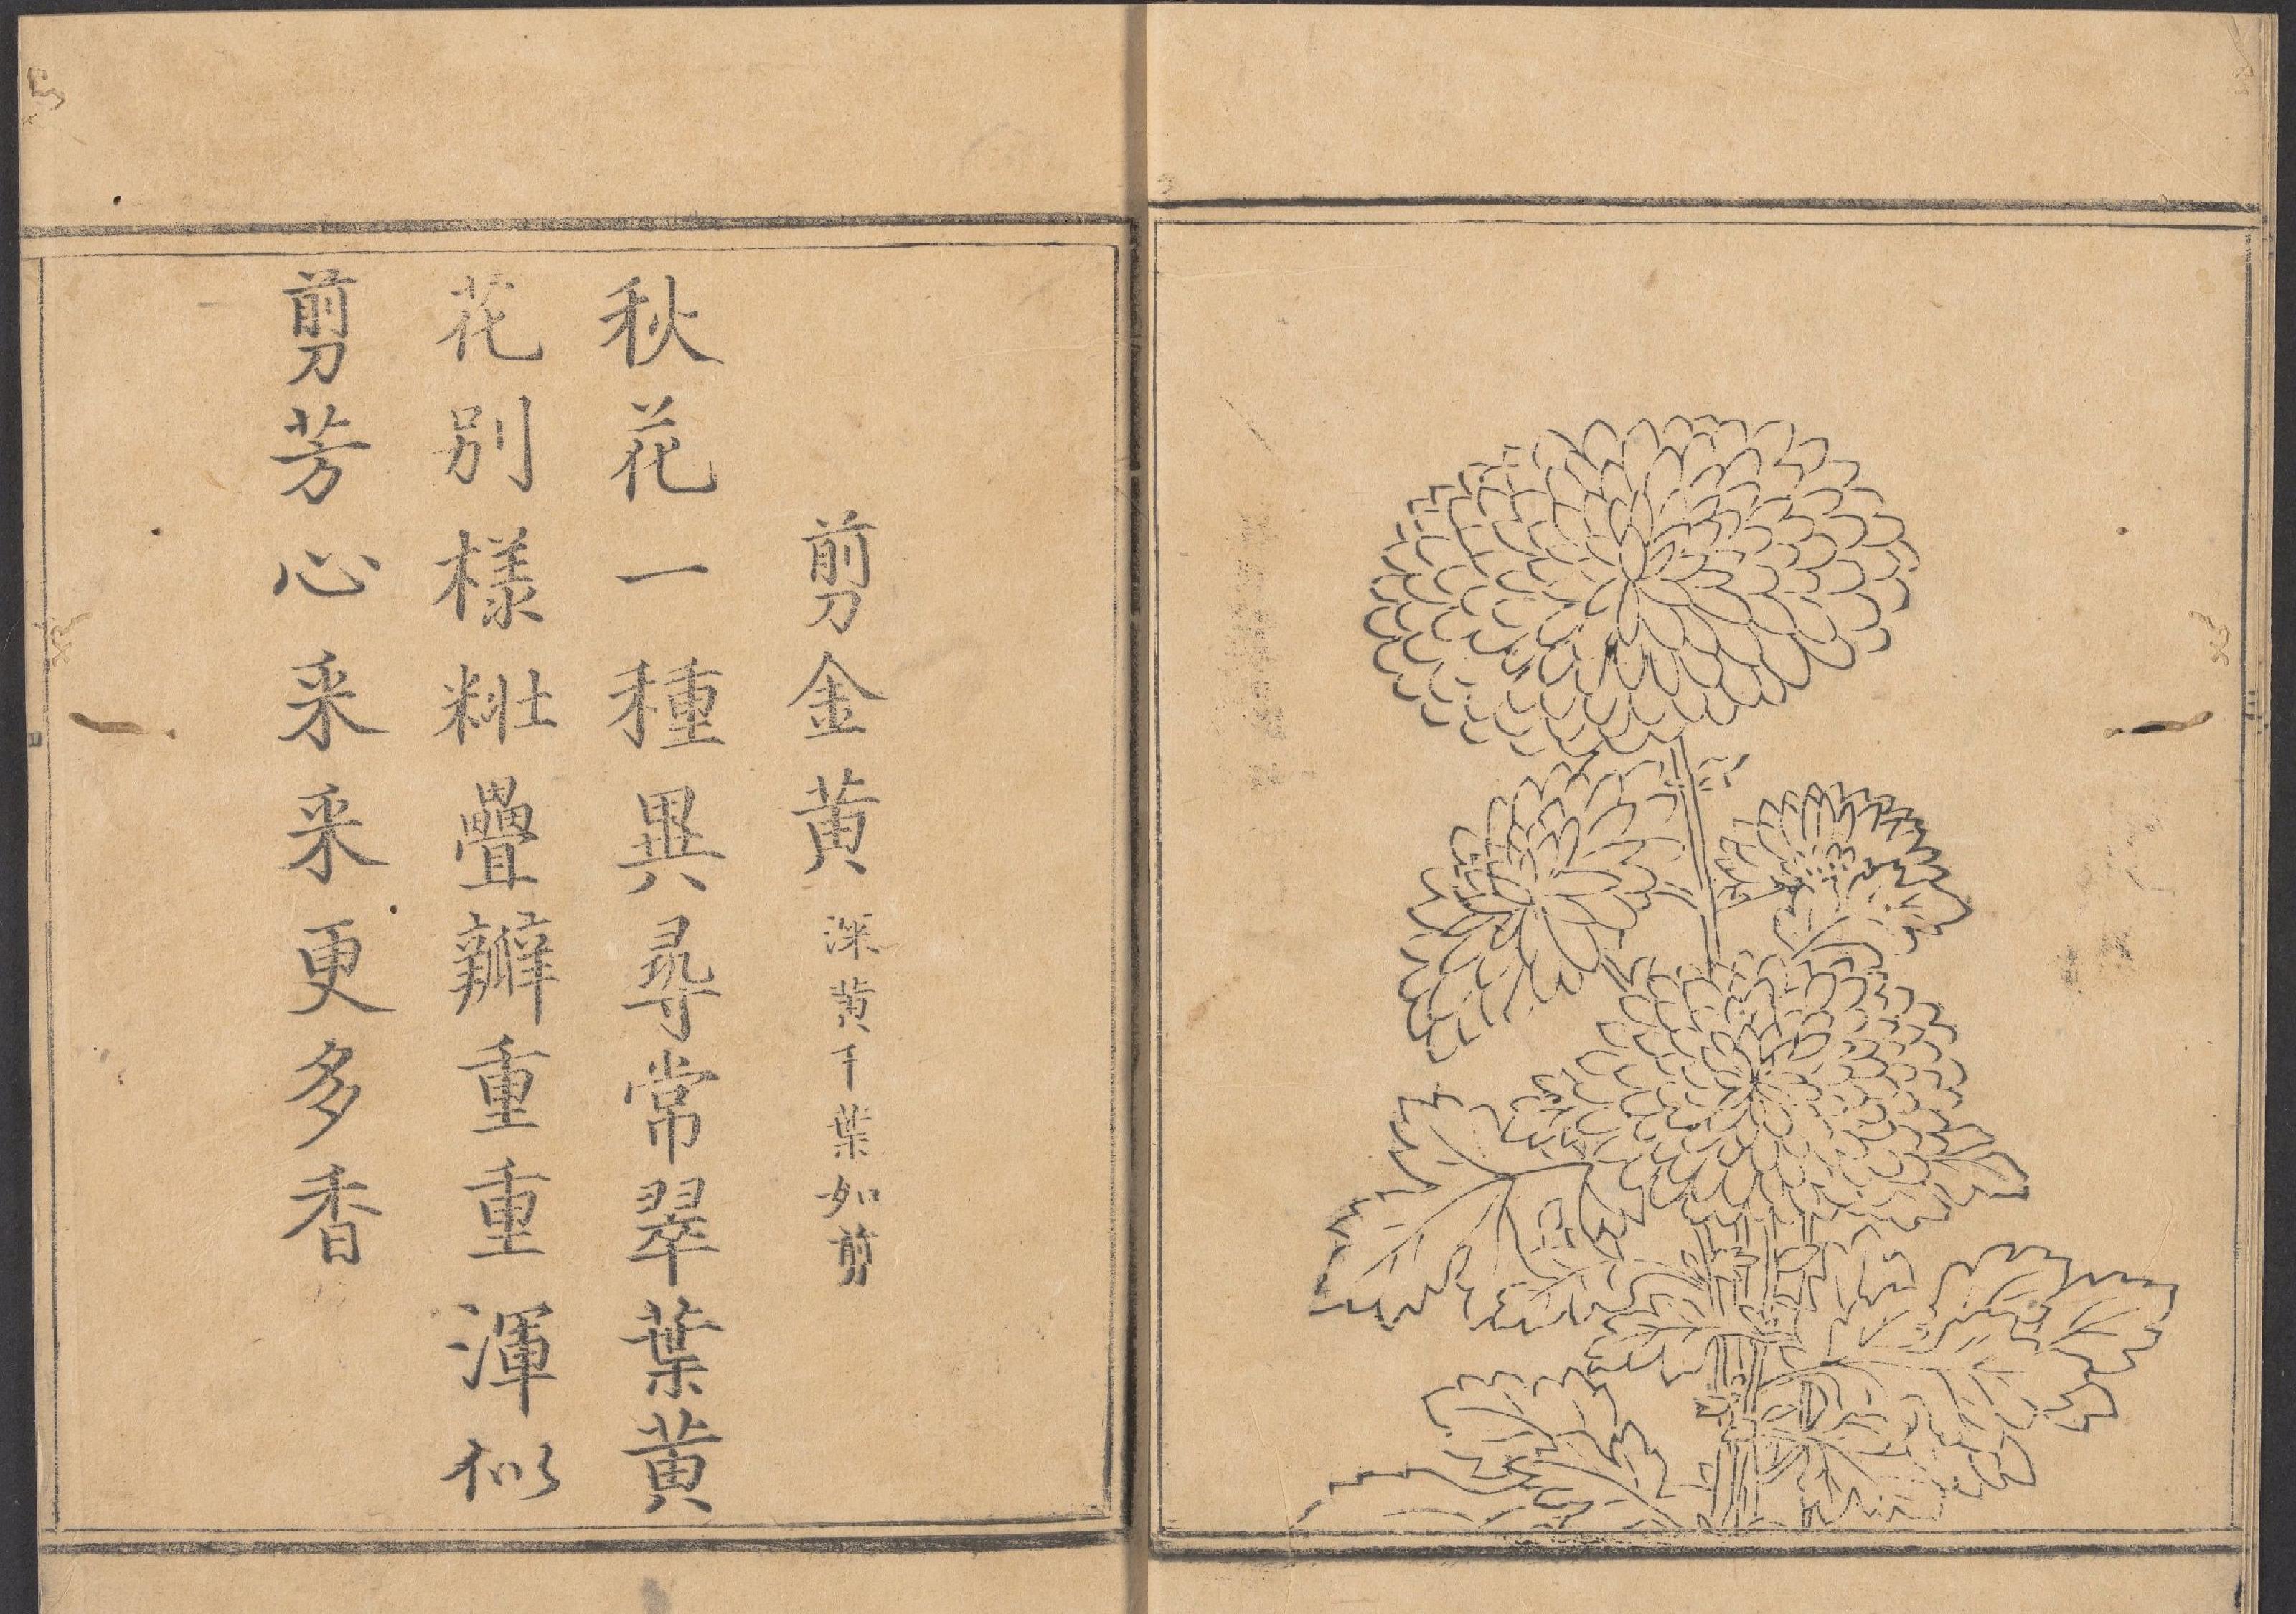 剪金黄 深黄千葉如剪
秋花一種異尋常翠葉黄
花別様粧疊瓣重重渾似
剪芳心采采更多香